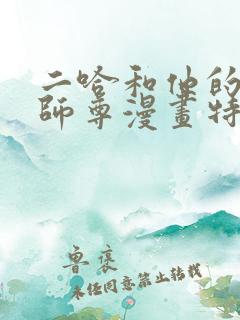 二哈和他的
師尊漫畫特
魯褒
未任同意禁止转载